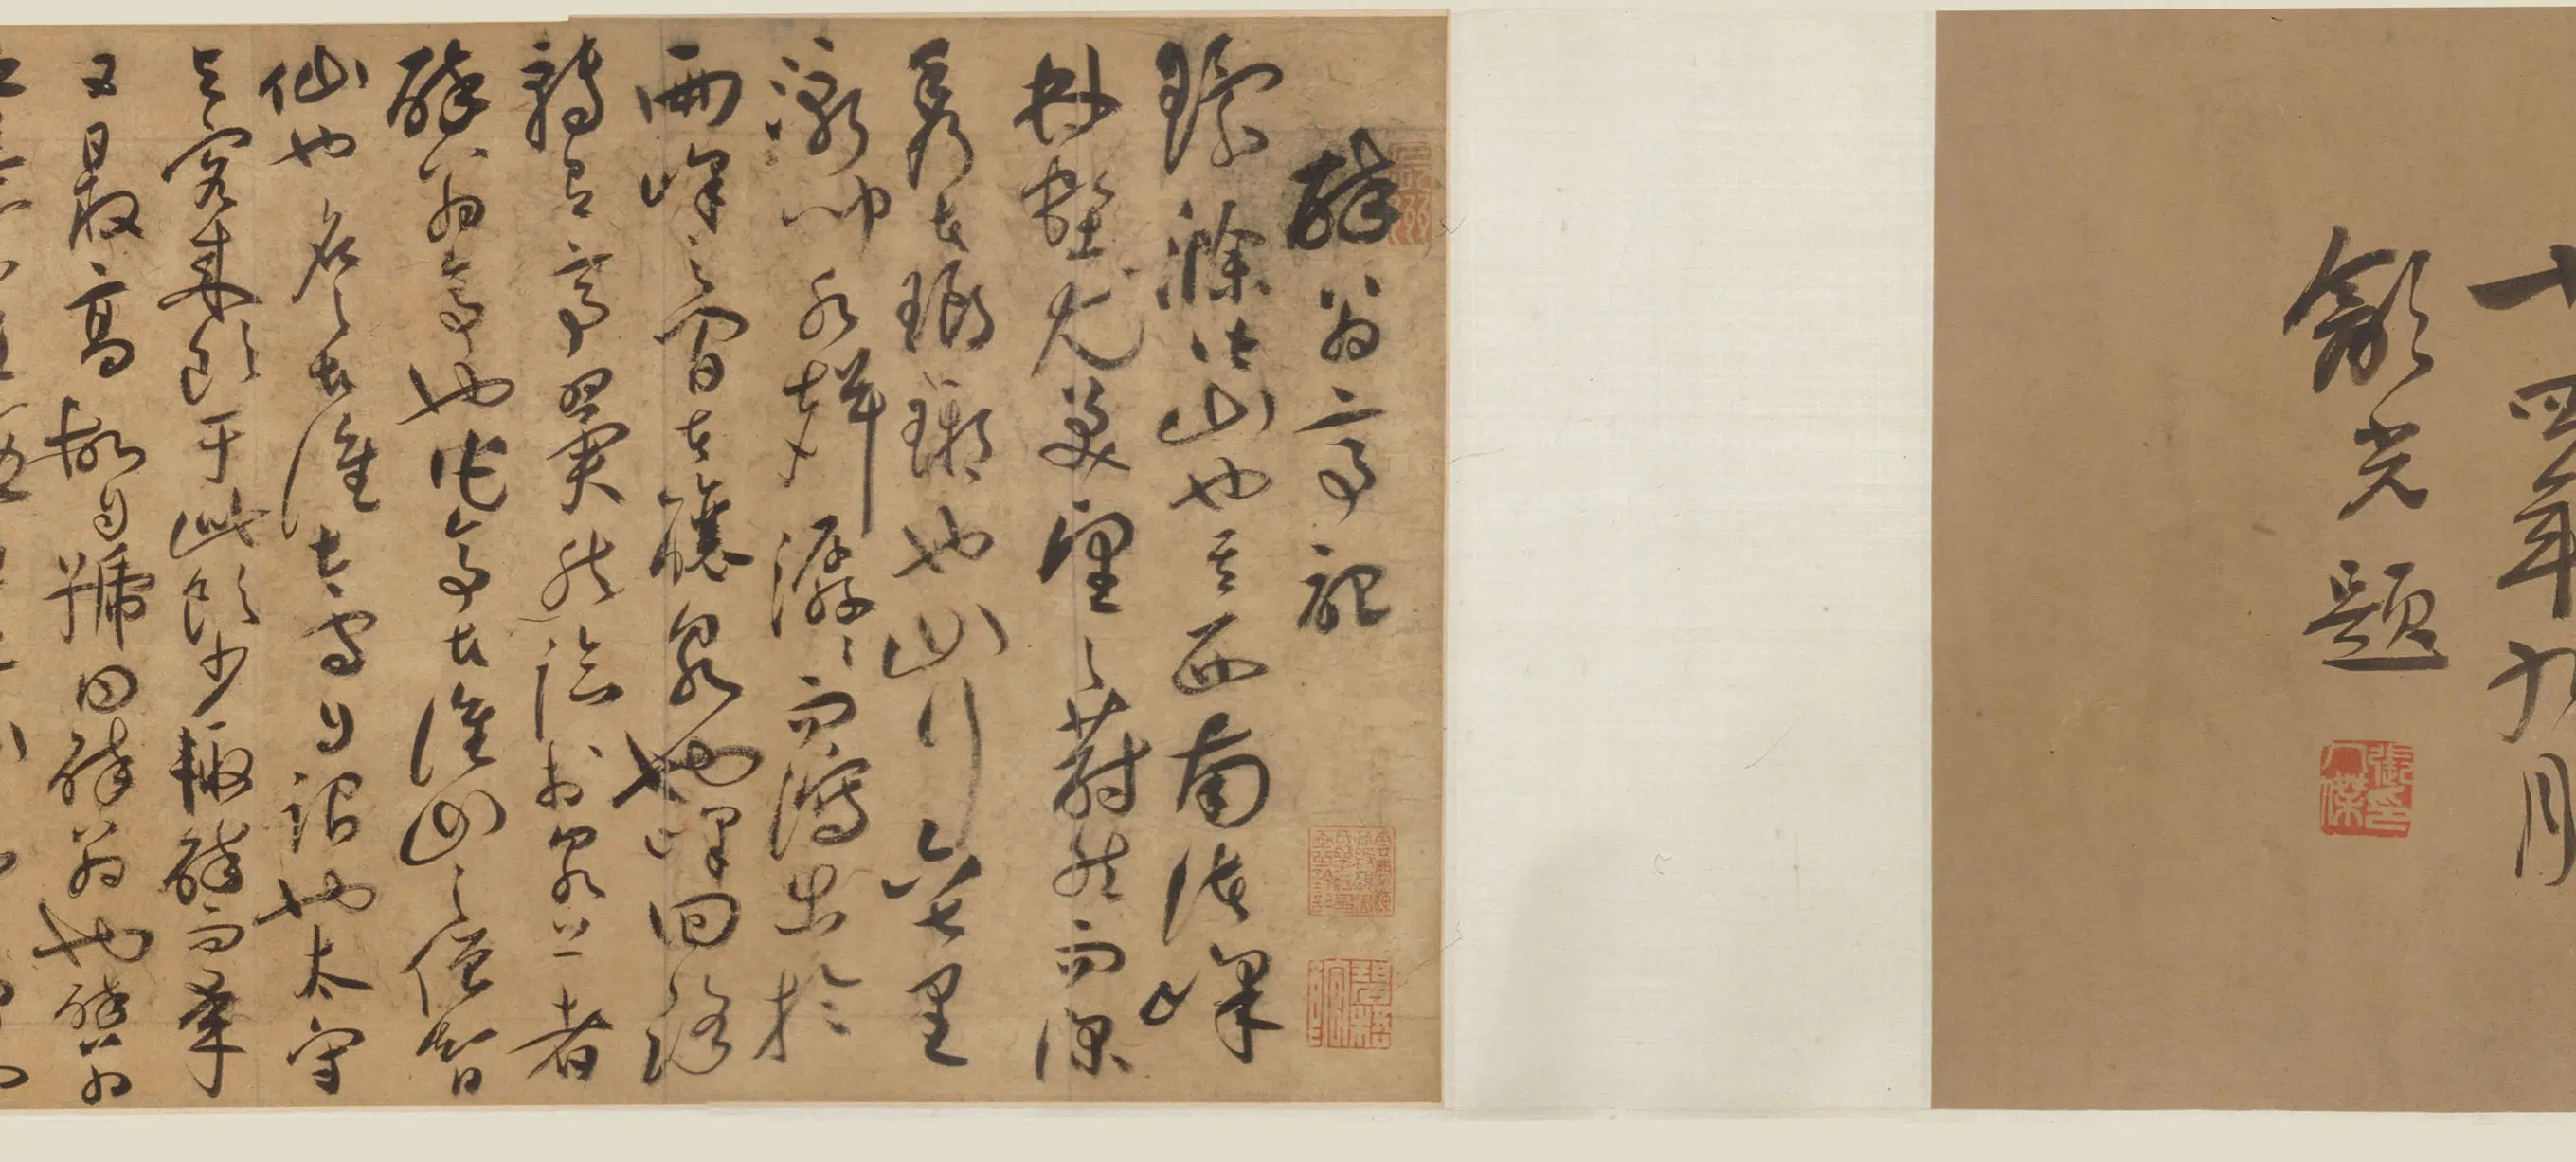 十四年九月
飲光題
張印人傑
醉翁亭記
環滁皆山也其西南諸峰
林壑尤美望之蔚然而深
秀者瑯琊也山行六七里
漸聞水聲潺潺而瀉出於
兩峰之間者釀泉也峰回路
轉有亭翼然臨於泉上者
醉翁亭也作亭者誰山之僧智
仙也名之者誰太守自謂也太守
與客來飲于此飲少輒醉而年
又最高故自號曰醉翁也醉翁